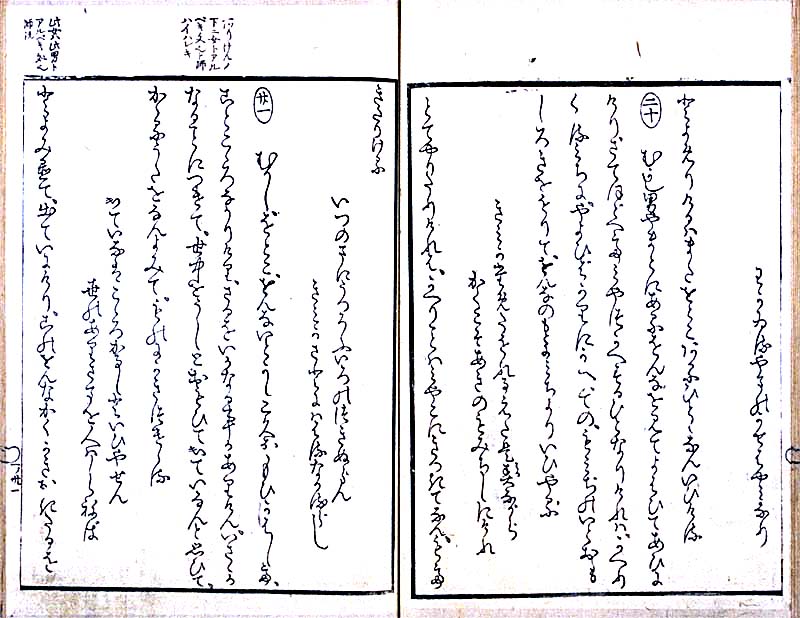 わかゐるやまのかせはやみなり
とよめりけるはまたをとこある人となんいひける
二十 むかし男やまとにある女をみてよばひてあひに
けりさてほどへて宮づかへする人なりければかへり
くるみちにやよひばかりにかへでのもみぢのいとおも
しろきををりて女のもとにみちよりいひやる
きみがためたをれる枝は春ながら
かくこそあきのもみぢしにけれ
とてやりたりければかへりことは京にきつきてなんもて
きたりける
いつのまにうつろふいろのつきぬらん
きみがさとにははるなかるらし
廿一 むかしをとこ女いとかしこくおもひかはして
ことこころなかりけりさるをいかなる事かありけんいささか
なることにつけて世中をうしとおもひていでていなんと思ひて
かかるうたをなんよみてものにかきつけける
いでていなばこころかるしといひやせん
世のありさまを人はしらねば
とよみおきて出ていにけりこの女かくかきおきたるを